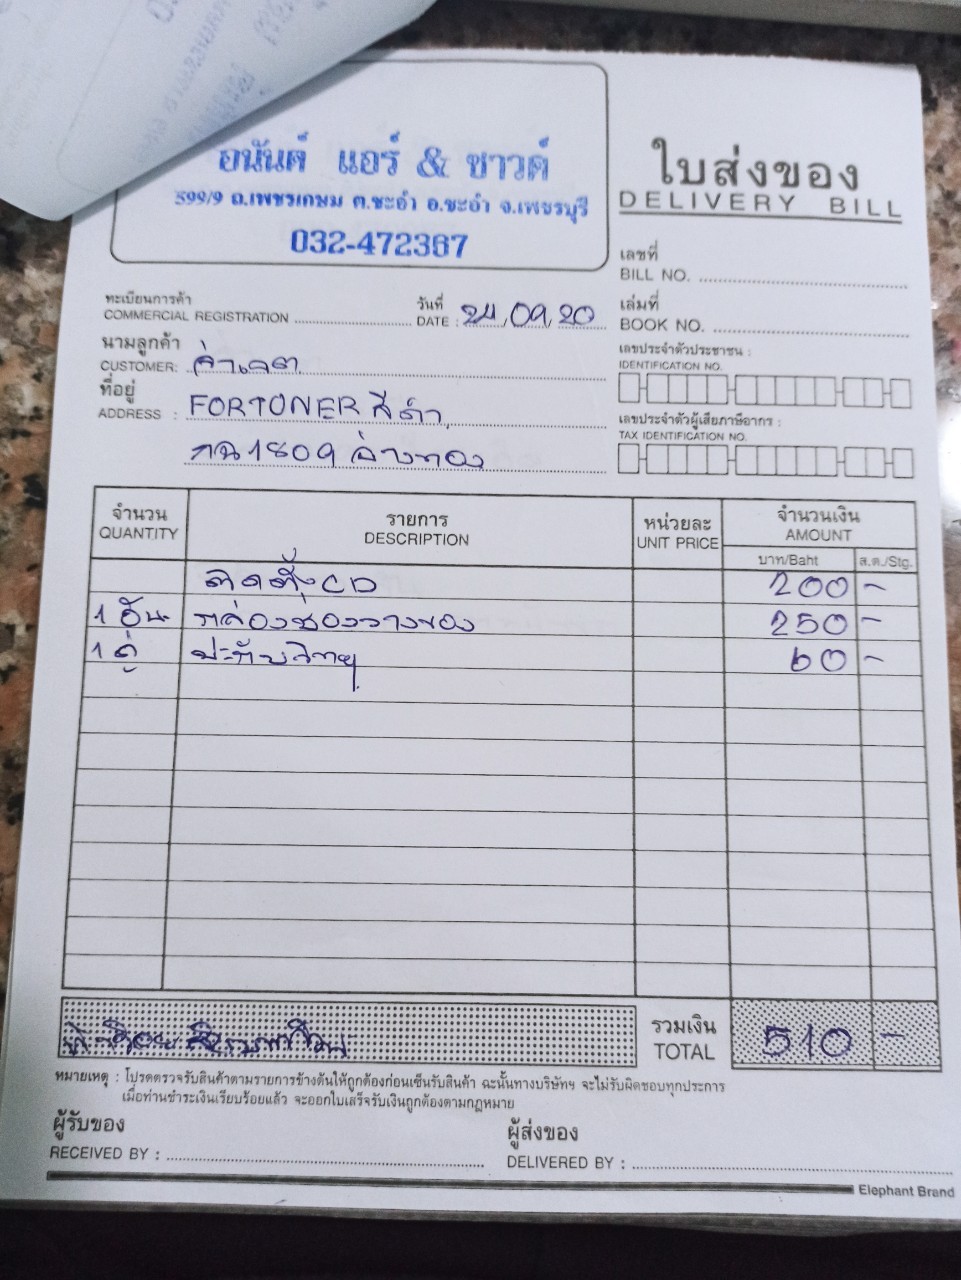 อนันต์ แอร์ & ซาวด์
599/9 ถ.เพชรเกษม ต.ชะอำ อ.ชะอำ จ.เพชรบุรี
032-472367
ใบส่งของ
DELIVERY BILL
เลขที่
BILL NO.
ทะเบียนการค้า
COMMERCIAL REGISTRATION
วันที่
DATE : 24/09/20
เล่มที่
BOOK NO.
นามลูกค้า
CUSTOMER:
ที่อยู่
ADDRESS : FORTONER สีดำ
กฉ 1809 อ่างทอง
เลขประจำตัวประชาชน :
IDENTIFICATION NO.
เลขประจำตัวผู้เสียภาษีอากร :
TAX IDENTIFICATION NO.
จำนวน รายการ หน่วยละ จำนวนเงิน
QUANTITY DESCRIPTION UNIT PRICE AMOUNT
บาท/Baht ส.ต./Stg.
ติดตั้ง CD 200 -
1 อัน กล่องช่องวางของ 250 -
1 คู่ ปะกับวิทยุ 60 -
รวมเงิน
TOTAL 510 -
หมายเหตุ : โปรดตรวจรับสินค้าตามรายการข้างต้นให้ถูกต้องก่อนเซ็นรับสินค้า ฉะนั้นทางบริษัทฯ จะไม่รับผิดชอบทุกประการ
เมื่อท่านชำระเงินเรียบร้อยแล้ว จะออกใบเสร็จรับเงินถูกต้องตามกฎหมาย
ผู้รับของ
RECEIVED BY :
ผู้ส่งของ
DELIVERED BY :
Elephant Brand